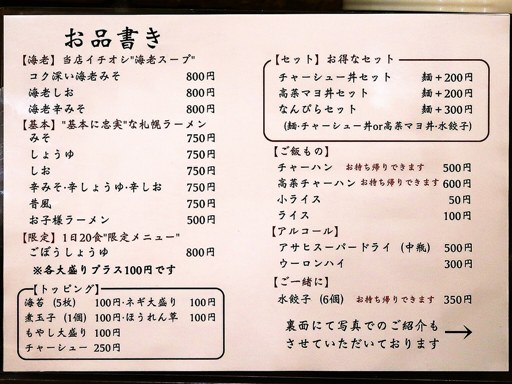 お品書き
【海老】当店イチオシ"海老スープ"
コク深い海老みそ 800円
海老しお 800円
海老辛みそ 800円
【基本】"基本に忠実"な札幌ラーメン
みそ 750円
しょうゆ 750円
しお 750円
辛みそ・辛しょうゆ・辛しお 750円
昔風 750円
お子様ラーメン 500円
【限定】1日20食"限定メニュー"
ごぼうしょうゆ 800円
※各大盛りプラス100円です
【トッピング】
海苔(5枚) 100円・ネギ大盛り 100円
煮玉子(1個) 100円・ほうれん草 100円
もやし大盛り 100円
チャーシュー 250円
【セット】お得なセット
チャーシュー丼セット 麺+200円
高菜マヨ丼セット 麺+200円
なんぴらセット 麺+300円
(麺・チャーシュー丼or高菜マヨ丼・水餃子)
【ご飯もの】
チャーハン お持ち帰りできます 500円
高菜チャーハン お持ち帰りできます 600円
小ライス 50円
ライス 100円
【アルコール】
アサヒスーパードライ(中瓶) 500円
ウーロンハイ 300円
【ご一緒に】
水餃子(6個) お持ち帰りできます 350円
裏面にて写真でのご紹介も
させていただいております →